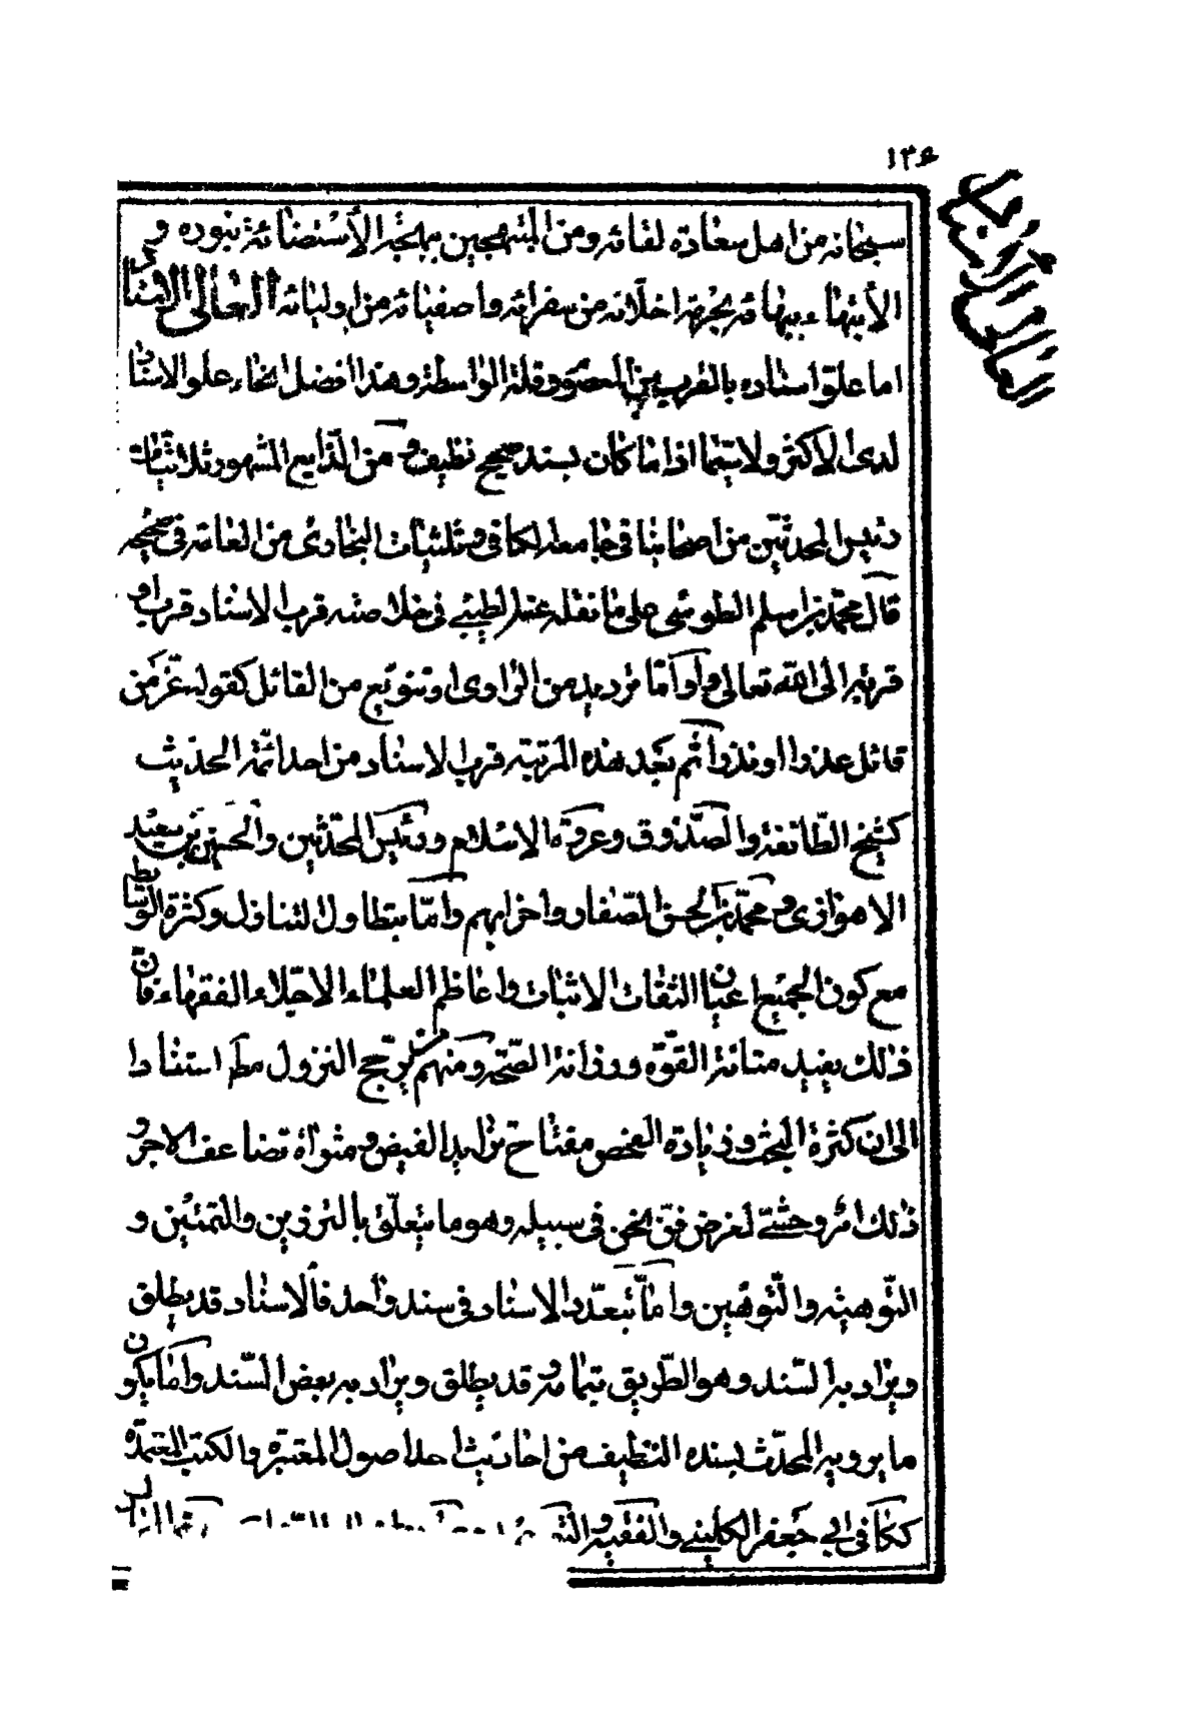 ١٢۶
سبحانه من اهل سعادة لقائه ومن المبتهجين ببهجة الأستضائة بنوره و
الأبتهاء ببهائه بحرمة اخلّائه من سفرائه واصفيائه من اوليائه العالى الاسناد
اما علوّ اسناده بالقرب من المعصوم وقلة الواسطة وهذا أفضل انحاء علو الاسناد
لدى الاكثر ولا سيّما اذا ما كان بسند صحيح نظيف ومن الذايع المشهور ثلاثيّات
رئيس المحدثين من اصحابنا فى جامعه الكافى وثلثيات البخارى من العامة فى صحيحه
قال محمد بن اسلم الطوسى على ما نقله عنه الطيبى فى خلاصته قرب الاسناد قرب او
قربة الى الله تعالى واو اما ترديد من الراوى او تنويع من القائل كقوله عز من
قائل عذرا او نذرا ثم بحد هذه المرتبة قرب الاسناد من احد ائمّة الحديث
كشيخ الطّائفة والصّدوق وعروة الاسلام ورئيس المحدّثين والحسين بن سعيد
الاهوازى ومحمّد بن الحسن الصّفار واضرابهم وامّا بتطاول التنازل وكثرة الوسائط
مع كون الجميع اعيان الثقات الاثبات واعاظم العلماء الاجلّاء الفقهاء فانّ
ذلك يفيد متانة القوّة ورزانة الصّحة ومنهم من يرجّح النزول مط استنادا
الى ان كثرة البحث وزيادة الفحص مفتاح تزايد الفيض ومثواة تضاعف الاجر و
ذلك امر وحشىّ لغرض فنّ نحن فى سبيله وهو ما يتعلّق بالترزين والتمتين و
التّوهية والتّوهين وامّا بتعدّد الاسناد فى سند واحد فالاسناد قد يطلق
ويراد به السّند وهو الطّريق بتمامه وقد يطلق ويراد به بعض السّند واما بكون
ما يرويه المحدّث بسنده النظيف من احاديث احد اصول المعتبرة والكتب المعتمدة
ككافى ابى جعفر الكلينى والفقيه